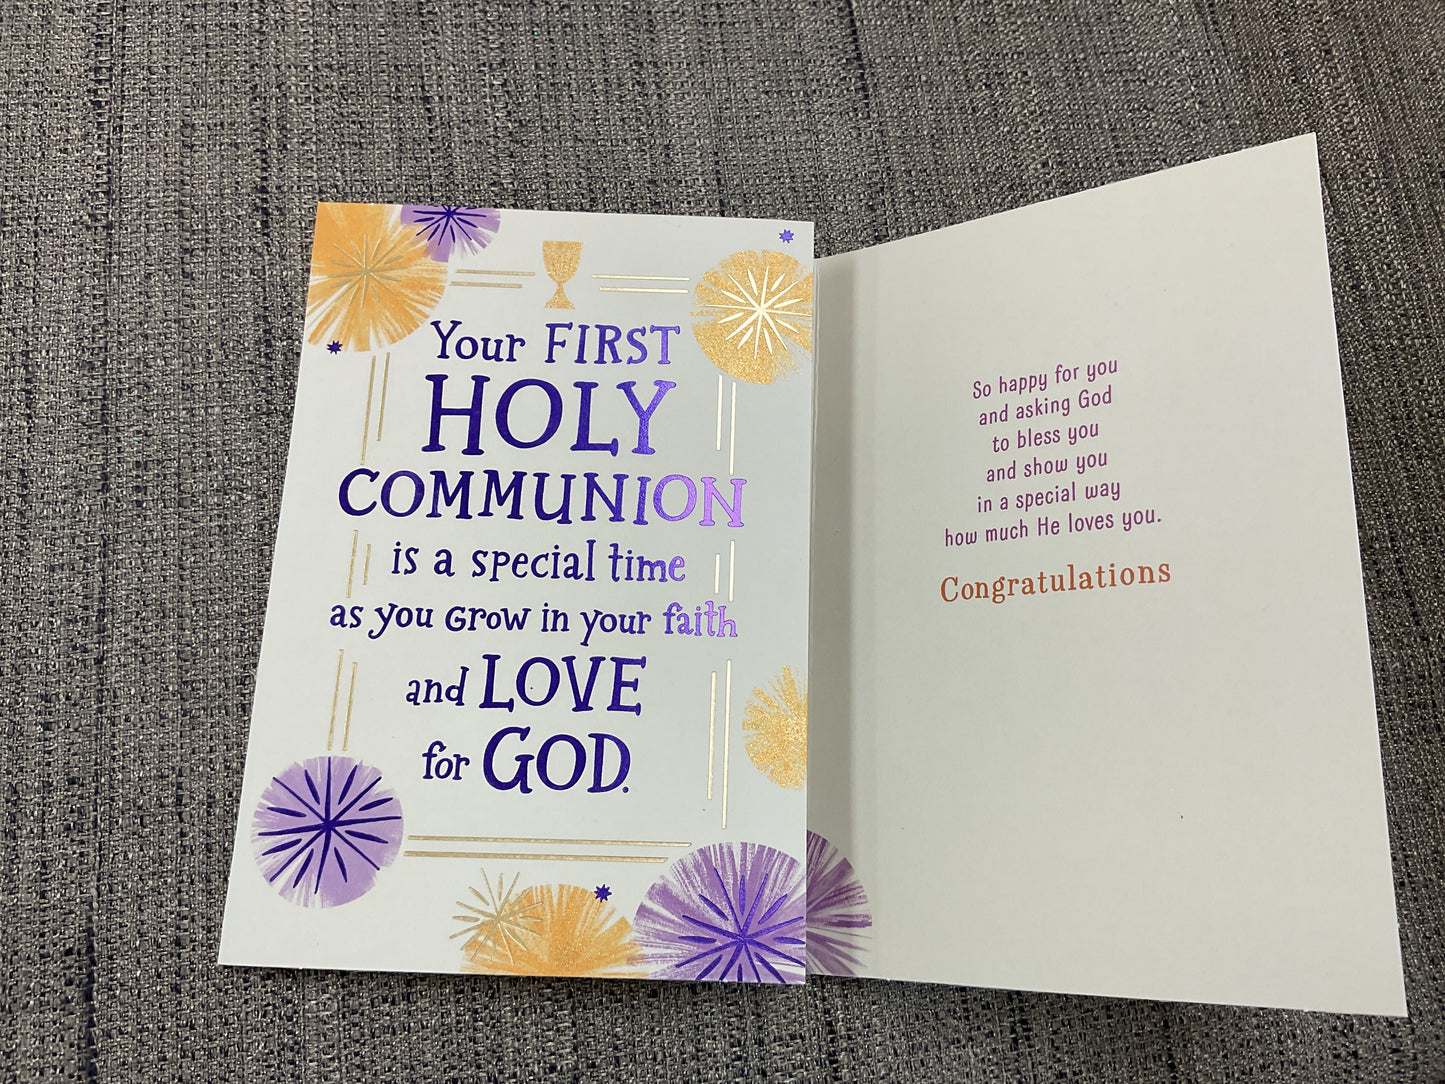 Your FIRST
HOLY
COMMUNION
is a special time
as you GROW in your faith
and LOVE
for GOD.
So happy for you
and asking God
to bless you
and show you
in a special way
how much He loves you.
Congratulations